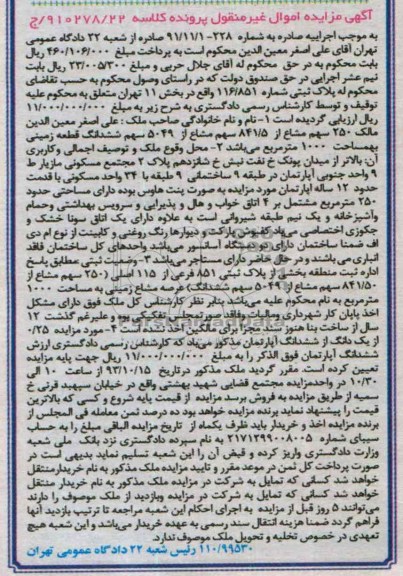 آگهی مزایده اموال غیرمنقول پرونده کلاسه ۹۱۰۲۷۸/۲۲/ج
به موجب اجراییه صادره به شماره ۲۲۸-۹۱/۱۱/۱ صادره از شعبه ۲۲ دادگاه عمومی
تهران آقای علی اصغر معین الدین محکوم است به پرداخت مبلغ ۴۶۰/۱۰۶/۰۰۰ ریال
بابت محکوم به در حق محکوم له آقای جلال حربی و مبلغ ۲۳/۰۰۵/۳۰۰ ریال بابت
نیم عشر اجرایی در حق صندوق دولت که در راستای وصول محکوم به حسب تقاضای
محکوم له پلاک ثبتی شماره ۱۱۶/۸۵۱ واقع در بخش ۱۱ تهران متعلق به محکوم علیه
توقیف و توسط کارشناس رسمی دادگستری به شرح زیر به مبلغ ۱۱/۰۰۰/۰۰۰/۰۰۰
ریال ارزیابی گردیده است ۱- نام و نام خانوادگی صاحب ملک : علی اصغر معین الدین
مالک ۲۵۰ سهم مشاع از ۸۴۱/۵ سهم مشاع از ۵۰۴۹ سهم ششدانگ قطعه زمینی
بهمساحت ۱۰۰۰ مترمربع می‌باشد ۲- محل وقوع ملک و توصیف اجمالی و کاربری
آن: بالاتر از میدان پونک خ نفت نبش خ شانزدهم پلاک ۲ مجتمع مسکونی مازیار ط
۹ واحد جنوبی آپارتمان در طبقه ۹ ساختمانی ۹ طبقه با ۳۴ واحد مسکونی با قدمت
حدود ۱۲ ساله آپارتمان مورد مزایده به صورت پنت هاوس بوده دارای مساحتی حدود
۲۵۰ مترمربع مشتمل بر ۴ اتاق خواب و هال و پذیرایی و سرویس بهداشتی وحمام
وآشپزخانه و یک نیم طبقه شیروانی است به علاوه دارای یک اتاق سونا خشک و
جکوزی اختصاصی می‌باشد کفپوش پارکت و دیوارها رنگ روغنی و کابینت از نوع ام دی
اف ضمنا ساختمان دارای دو دستگاه آسانسور می‌باشد واحدهای کل ساختمان فاقد
انباری می‌باشند و در حال حاضر دارای مستاجر می‌باشد ۳- وضعیت ثبتی مطابق پاسخ
اداره ثبت منطقه بخشی از پلاک ثبتی ۸۵۱ فرعی از ۱۱۵ اصلی (۲۵۰ سهم مشاع از
۸۴۱/۵۰ سهم مشاع از ۵۰۴۹ سهم ششدانگ) عرصه مشاع زمینی به مساحت ۱۰۰۰
مترمربع به نام محکوم علیه می‌باشد بنابر نظر کارشناس کل ملک فوق دارای مشکل
اخذ پایان کار شهرداری ومالیات وفاقد صورتمجلس تفکیکی بوده و علیرغم گذشت ۱۲
سال از ساخت بنا هنوز سند مجزا برای مالکین اخذ نشده است ۴- مورد مزایده ۰/۲۵
از یک دانگ از ششدانگ آپارتمان مذکور می‌باشد که کارشناس رسمی دادگستری ارزش
ششدانگ آپارتمان فوق الذکر را به مبلغ ۱۱/۰۰۰/۰۰۰/۰۰۰ ریال جهت پایه مزایده
تعیین کرده است. مقرر گردید ملک مذکور درتاریخ ۹۳/۱۰/۱۵ از ساعت ۱۰ الی
۱۰/۳۰ در واحدمزایده مجتمع قضایی شهید بهشتی واقع در خیابان سپهبد قرنی خ
سمیه از طریق مزایده به فروش برسد مزایده از قیمت پایه شروع و کسی که بالاترین
قیمت را پیشنهاد نماید برنده مزایده خواهد بود ده درصد ثمن معامله فی المجلس از
برنده مزایده اخذ و خریدار باید ظرف یکماه از تاریخ مزایده الباقی مبلغ را به حساب
سیبای شماره ۲۱۷۱۲۹۹۰۰۸۰۰۵ به نام سپرده دادگستری نزد بانک ملی شعبه
وزارت دادگستری واریز کرده و قبض آن را این شعبه تسلیم نماید بدیهی است در
صورت پرداخت کل ثمن در موعد مقرر و تایید مزایده ملک مذکور به نام خریدارمنتقل
خواهد شد کسانی که تمایل به شرکت در مزایده ملک مذکور به نام خریدار منتقل
خواهد شد. کسانی که تمایل به شرکت در مزایده وبازدید از ملک موصوف را دارند
می‌توانند ۵ روز قبل از مزایده به اجرای احکام این شعبه مراجعه تا ترتیب بازدید آنها
فراهم گردد ضمنا هزینه انتقال سند رسمی به عهده خریدار می‌باشد و این شعبه هیچ
تعهدی در خصوص تخلیه و تحویل ملک موصوف ندارد.
۱۱۰/۹۹۵۳۰ رئیس شعبه ۲۲ دادگاه عمومی تهران